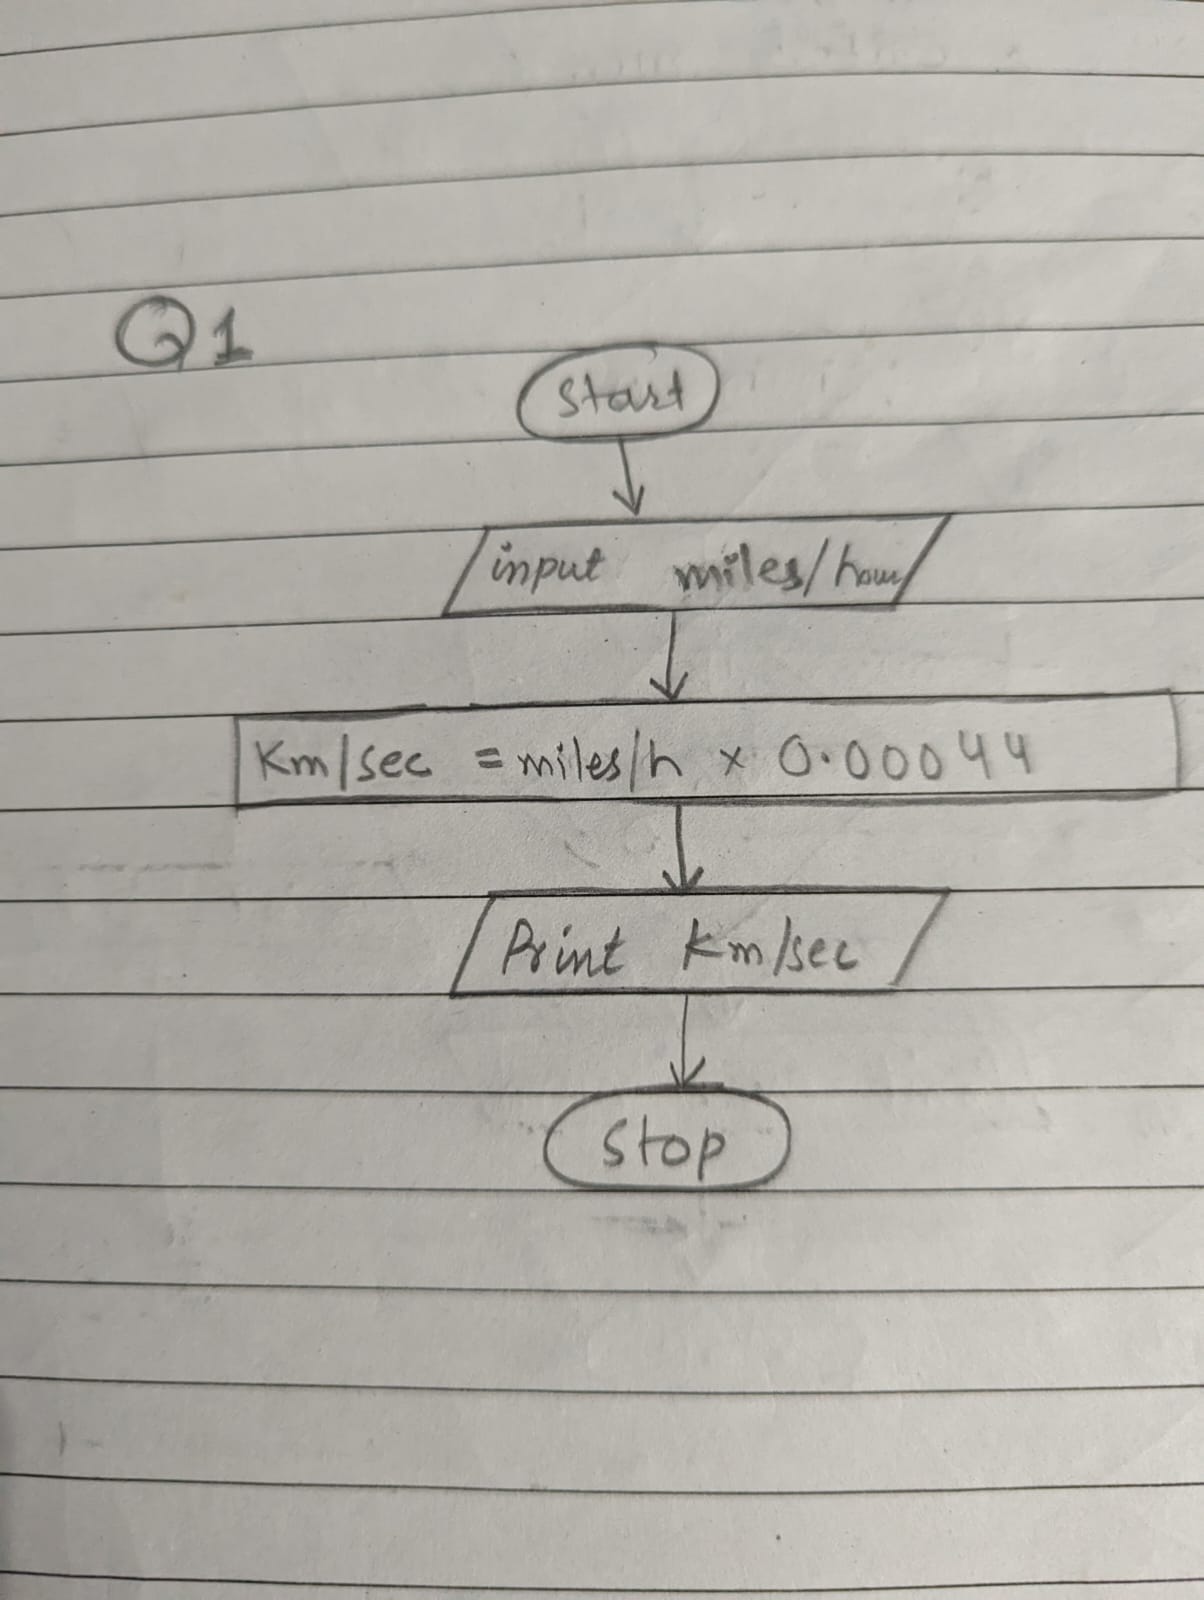 Q1
Start
input miles/hour
Km/sec = miles/h × 0.00044
Print Km/sec
Stop